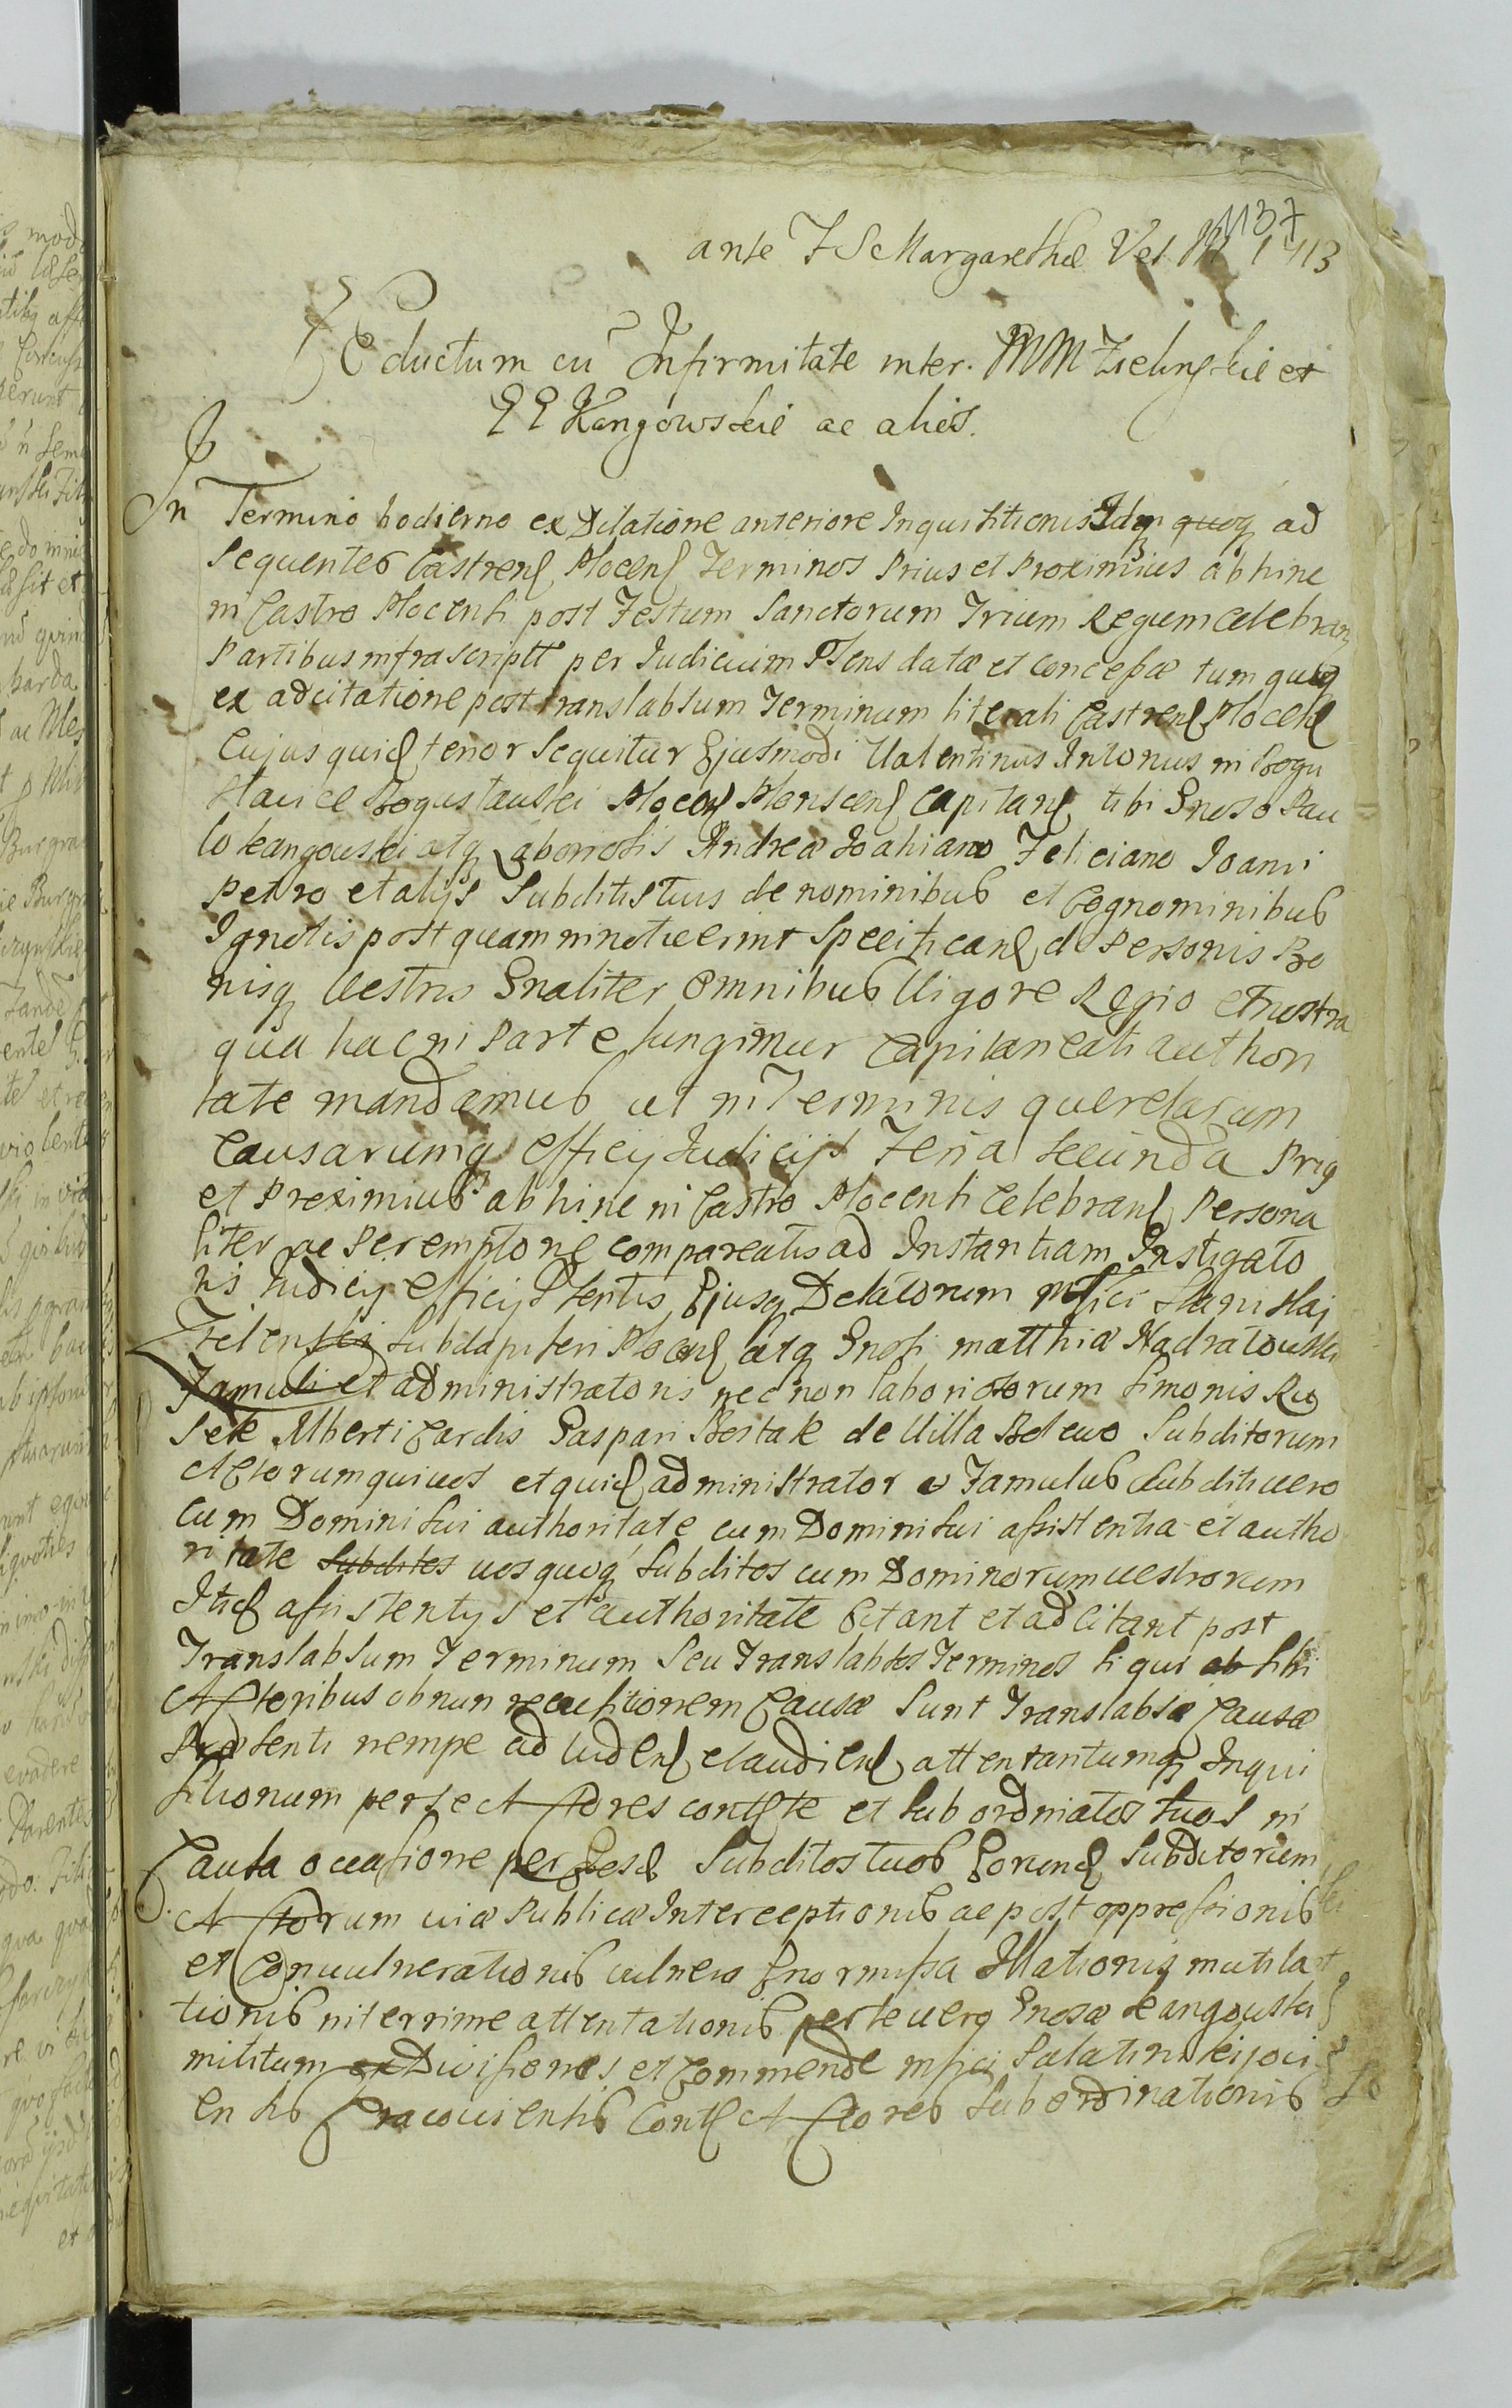 1137
ante F S Margarethæ Vet M 1713
Eductum cū Infirmitate inter. MM Zielinskie et
GG Kangowskie ac alios.
In Termino hodierno ex Dilatione anteriore Inquisitionis Idq quoq ad
Sequentes Castrens Plocens Terminos Prius et Proximius abhinc
in Castro Plocensi post Festum Sanctorum Trium Regum celebran
Partibus infrascriptt per Judicium Psens datæ et concessæ tum quoq
ex adcitatione post translabsum Terminum literali Castrens Plocens
Cujus quid tenor Sequitur Ejusmodi Valentinus Antonius in Bogu
slauice Boguslauski Plocens Plonscens Capitans tibi Gnoso Pau
lo kangouski atq laboriosis Andreæ Floriano Feliciano Joanni
Petro et alijs Subditis tuis de nominibus et Cognominibus
Ignotis postquam innotuerint Specificans de Personis Bo
nisq Uestris Gnaliter Omnibus Uigore Regio et nostra
qua hac in Parte fungimur Capitaneali author
tate mandamus ut in Terminis querelarum
Causarumq Officij Judicijs Feria Secunda Prig
et Proximius abhinc in Castro Plocensi Celebrans Persona
liter ac Peremptorie compareatis ad Instantiam Instigato
ris Judicij Officij Psentis Ejusq Delatorum Mfici Stanislaj
Zielenski Subdapiferi Plocens atq Gnosi matthiæ Nadratouski
Famuli et administratoris nec non laboriosorum Simonis Ru
sek Alberti Cardis Gaspari Bestak de Uilla Beleuo Subditorum
Actorum qui uos et quid administrator e Famulus Subditi uero
cum Domini sui authoritate cum Domini sui assistentia et autho
ritate Subditos uos quoq Subditos cum Dominorum uestrorum
Itid assistentijs et authoritate Citant et adcitant post
Translabsum Terminum Seu Translabsos Terminos si qui ab sibi
Actoribus ob nun recusitionem Causæ Sunt Translabsæ Causæ
Præsenti nempe ad uidens et audiens attentantumq Inqui
sitionum per se Actores contste et Subordinatos tuos in
Causa occasione per Eosd Subditos tuos Eorund Subditorum
Actorum uiæ Publicæ Interceptionis ac post oppressionis
et Conuulnerationis uulneris Enormissa Illationis mutila
tionis niterrime attentationis per te uero Gnosæ kangouski
militum ex Diuisiones et Commende Mfici Palatini kijoui
ensis Cracouiensis Conts Actores Subordinationis